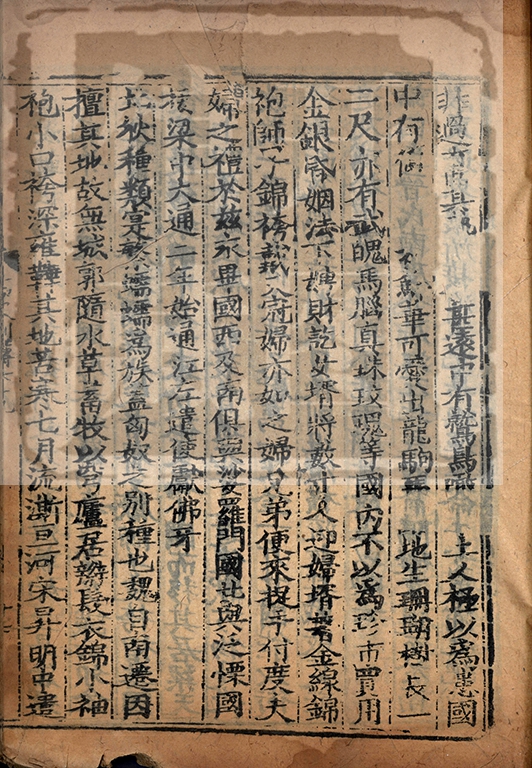 非過高其遠中有鷲鳥噉土人極以為患國
中有華可愛出龍駒地生珊瑚樹長一
二尺亦有武魄馬腦真珠玫瑰等國內不以為珍市買用
金銀婚姻法下娉財訖女壻將數十人迎婦壻著金線錦
袍師子錦袴戴天冠婦亦如之婦兄弟便來捉手付度夫
婦之禮於茲永畢國西及南俱與娑羅門國北與泛慄國
接梁中大通二年始通江左遣使獻佛牙
北狄種類寔繁蠕蠕為族蓋匈奴之別種也魏自南遷因
擅其地故無城郭隨水草畜牧以穹廬居辮髮衣錦小袖
袍小口袴深雍鞾其地苦寒七月流澌亘河宋昇明中遣